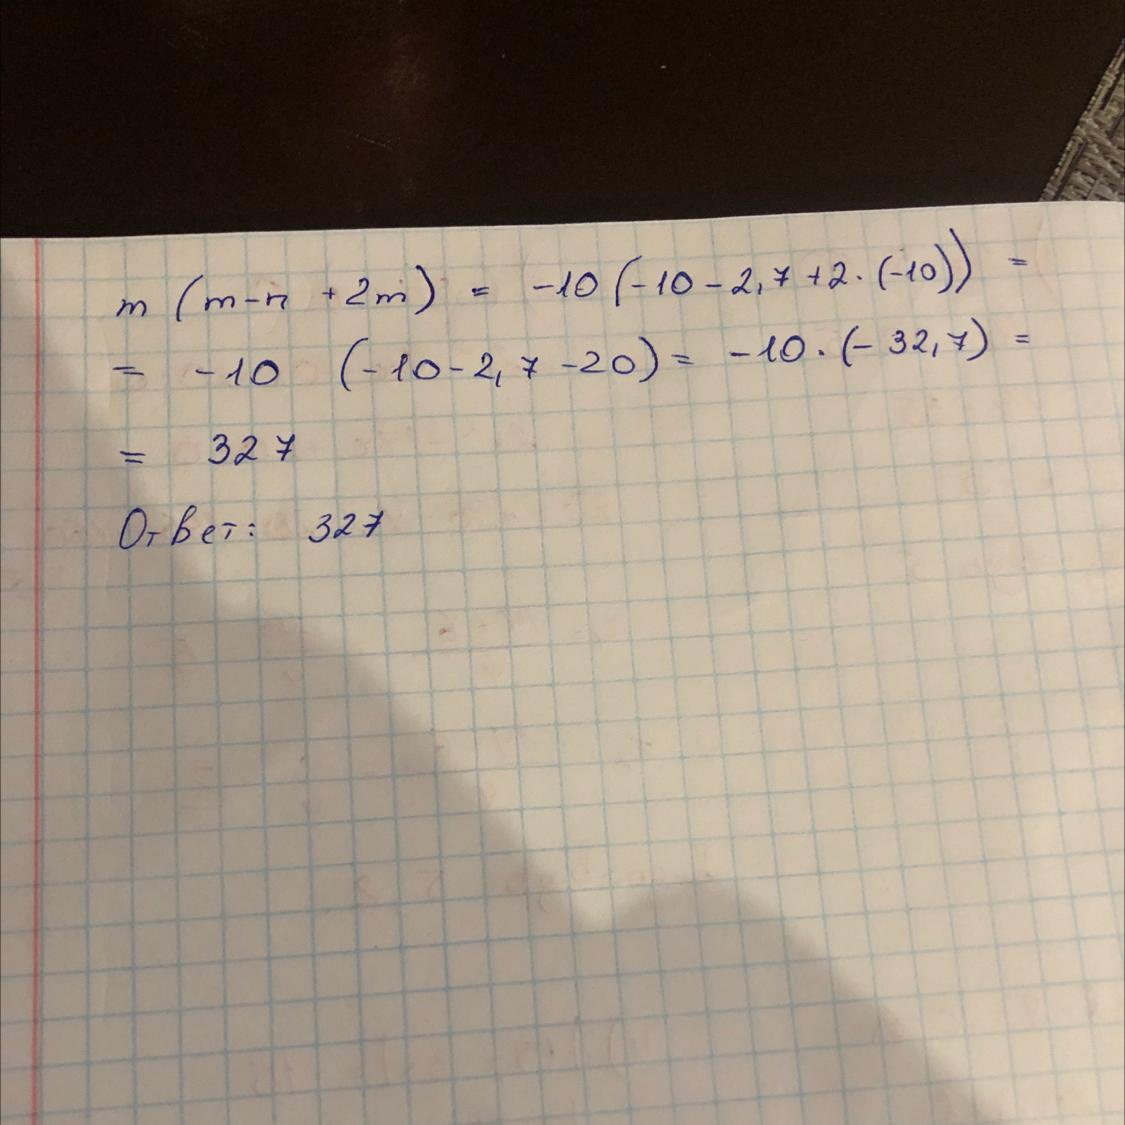 m (m-n +2m) = -10 (-10-2,7+2·(-10)) =
= -10 (-10-2,7-20) = -10·(-32,7) =
= 327
Ответ: 327